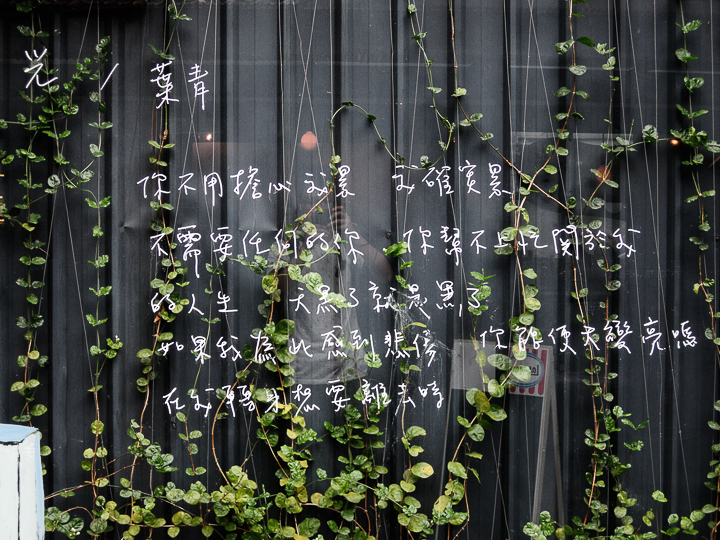 光/葉青
你不用擔心我累 我確實累
不需要任何的你 你幫不上忙關於我
的人生 天黑了就是黑了
如果我為此感到悲傷 你能使天變亮嗎
在我轉身想要離去時